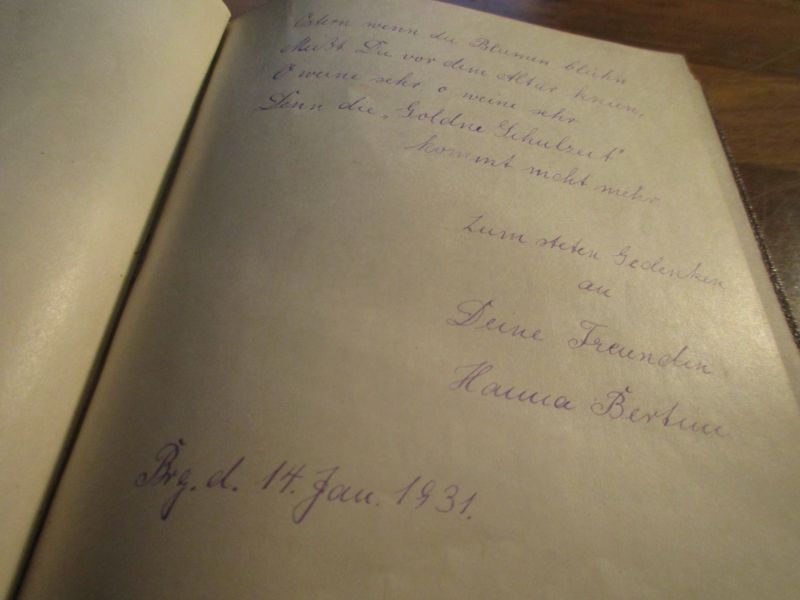 Ostern wenn die Blumen blühn
Mußt Du vor dem Altar knien,
O weine sehr, o weine sehr
Denn die „Goldne Schulzeit"
kommt nicht mehr
Zum steten Gedenken
an
Deine Freundin
Hanna
Brg. d. 14. Jan. 1931.